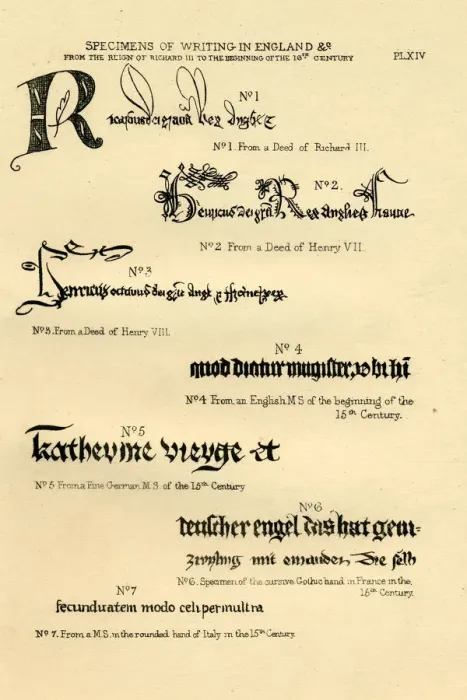 SPECIMENS OF WRITING IN ENGLAND &c
FROM THE REIGN OF RICHARD III TO THE BEGINNING OF THE 16TH CENTURY
PL XIV
Nº 1
Ricardus dei gratia Rex Anglie
Nº 1. From a Deed of Richard III.
Nº 2.
Henricus dei gra Rex Anglie & Fraunc
Nº 2 From a Deed of Henry VII.
Nº 3
Henricus octavus dei gra angl & ffrancie rex
Nº 3. From a Deed of Henry VIII.
Nº 4
quod dicatur magister, vbi
Nº 4 From an English MS of the beginning of the
15th Century.
Nº 5
Katherine vierge et
Nº 5 From a Fine German M.S. of the 15th Century
Nº 6
teuscher engel das hat gem-
mit die selb
Nº 6. Specimen of the cursive Gothic hand in France in the
15th Century.
Nº 7
fecunduatem modo celi per multra
Nº 7. From a M.S. in the rounded hand of Italy in the 15th Century.